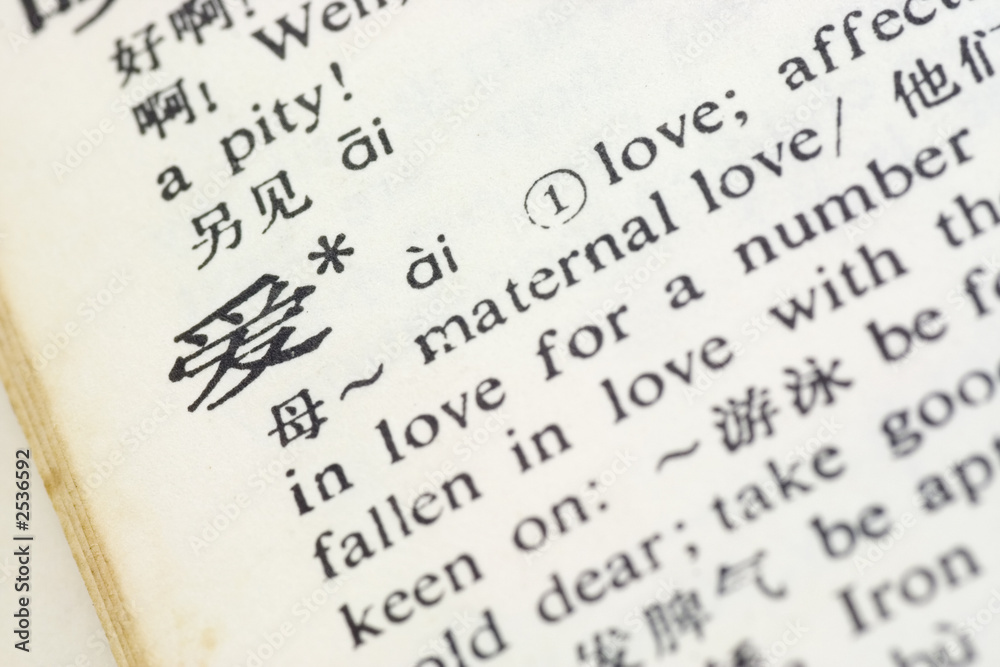 好啊!
啊! Well,
a pity!
另见 āi
爱* ài ①love; affec
母～ maternal love/ 他们
in love for a number
fallen in love with th
keen on: ～游泳 be f
old dear; take goo
发脾气 be ap
Iron
Adobe Stock | #2536592